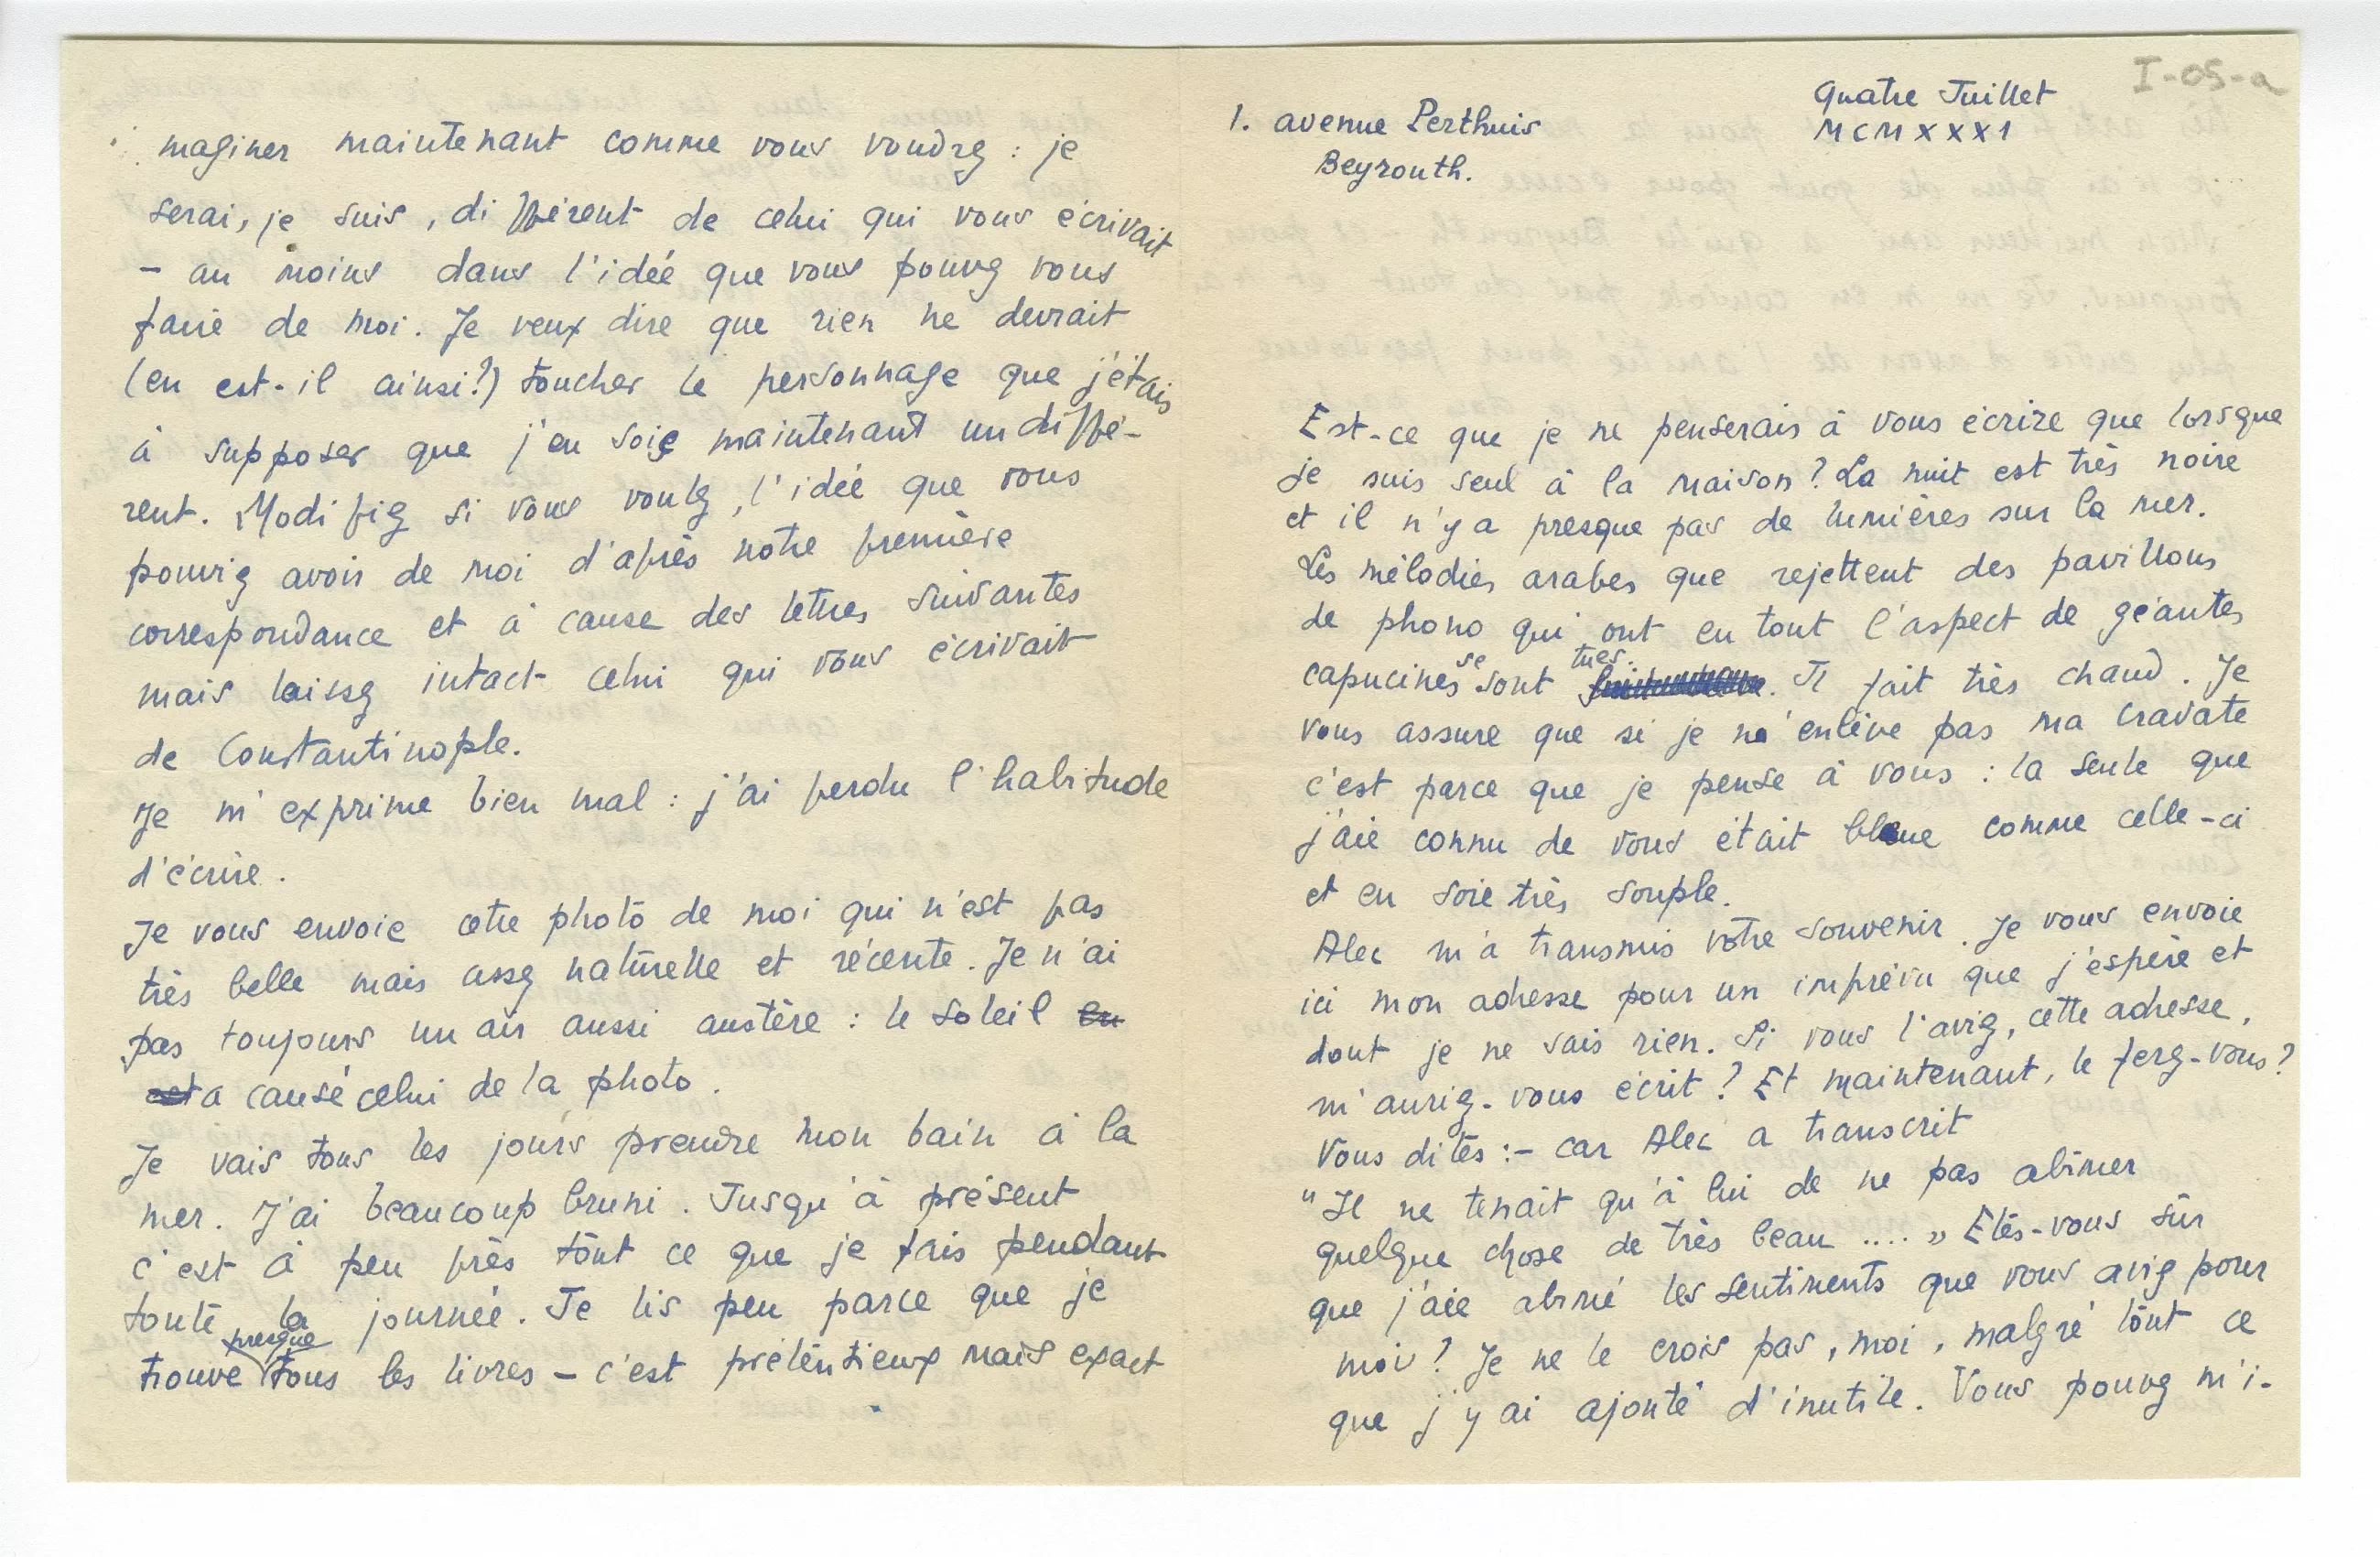 I-05-a
Quatre Juillet
MCMXXXI
1. avenue Perthuis
Beyrouth.
Est-ce que je ne penserais à vous écrire que lorsque
je suis seul à la maison? La nuit est très noire
et il n'y a presque pas de lumières sur la mer.
Les mélodies arabes que rejettent des pavillons
de phono qui ont en tout l'aspect de géantes
capucines se sont tues. Il fait très chaud. Je
vous assure que si je n'enlève pas ma cravate
c'est parce que je pense à vous : la seule que
j'aie connu de vous était bleue comme celle-ci
et en soie très souple.
Alec m'a transmis votre souvenir. Je vous envoie
ici mon adresse pour un imprévu que j'espère et
dont je ne sais rien. Si vous l'aviez, cette adresse,
m'auriez-vous écrit? Et maintenant, le ferez-vous?
Vous dites :- car Alec a transcrit
"Il ne tenait qu'à lui de ne pas abîmer
quelque chose de très beau .... » Etês-vous sûr
que j'aie abîmé les sentiments que vous aviez pour
moi? Je ne le crois pas, moi, malgré tout ce
que j'y ai ajouté d'inutile. Vous pouvez m'i-
maginer maintenant comme vous voudrez : je
serai, je suis, différent de celui qui vous écrivait
– au moins dans l'idée que vous pouvez vous
faire de moi. Je veux dire que rien ne devrait
(en est-il ainsi?) toucher le personnage que j'étais
à supposer que j'en soie maintenant un diffé-
rent. Modifiez si vous voulez, l'idée que vous
pouviez avoir de moi d'après notre première
correspondance et à cause des lettres suivantes
mais laissez intact celui qui vous écrivait
de Constantinople.
Je m'exprime bien mal : j'ai perdu l'habitude
d'écrire.
Je vous envoie cette photo de moi qui n'est pas
très belle mais assez naturelle et récente. Je n'ai
pas toujours un air aussi austère : le soleil en
est a causé celui de la photo.
Je vais tous les jours prendre mon bain à la
mer. J'ai beaucoup bruni. Jusqu'à présent
c'est à peu près tout ce que je fais pendant
toute la journée. Je lis peu parce que je
trouve presque tous les livres – c'est prétentieux mais exact